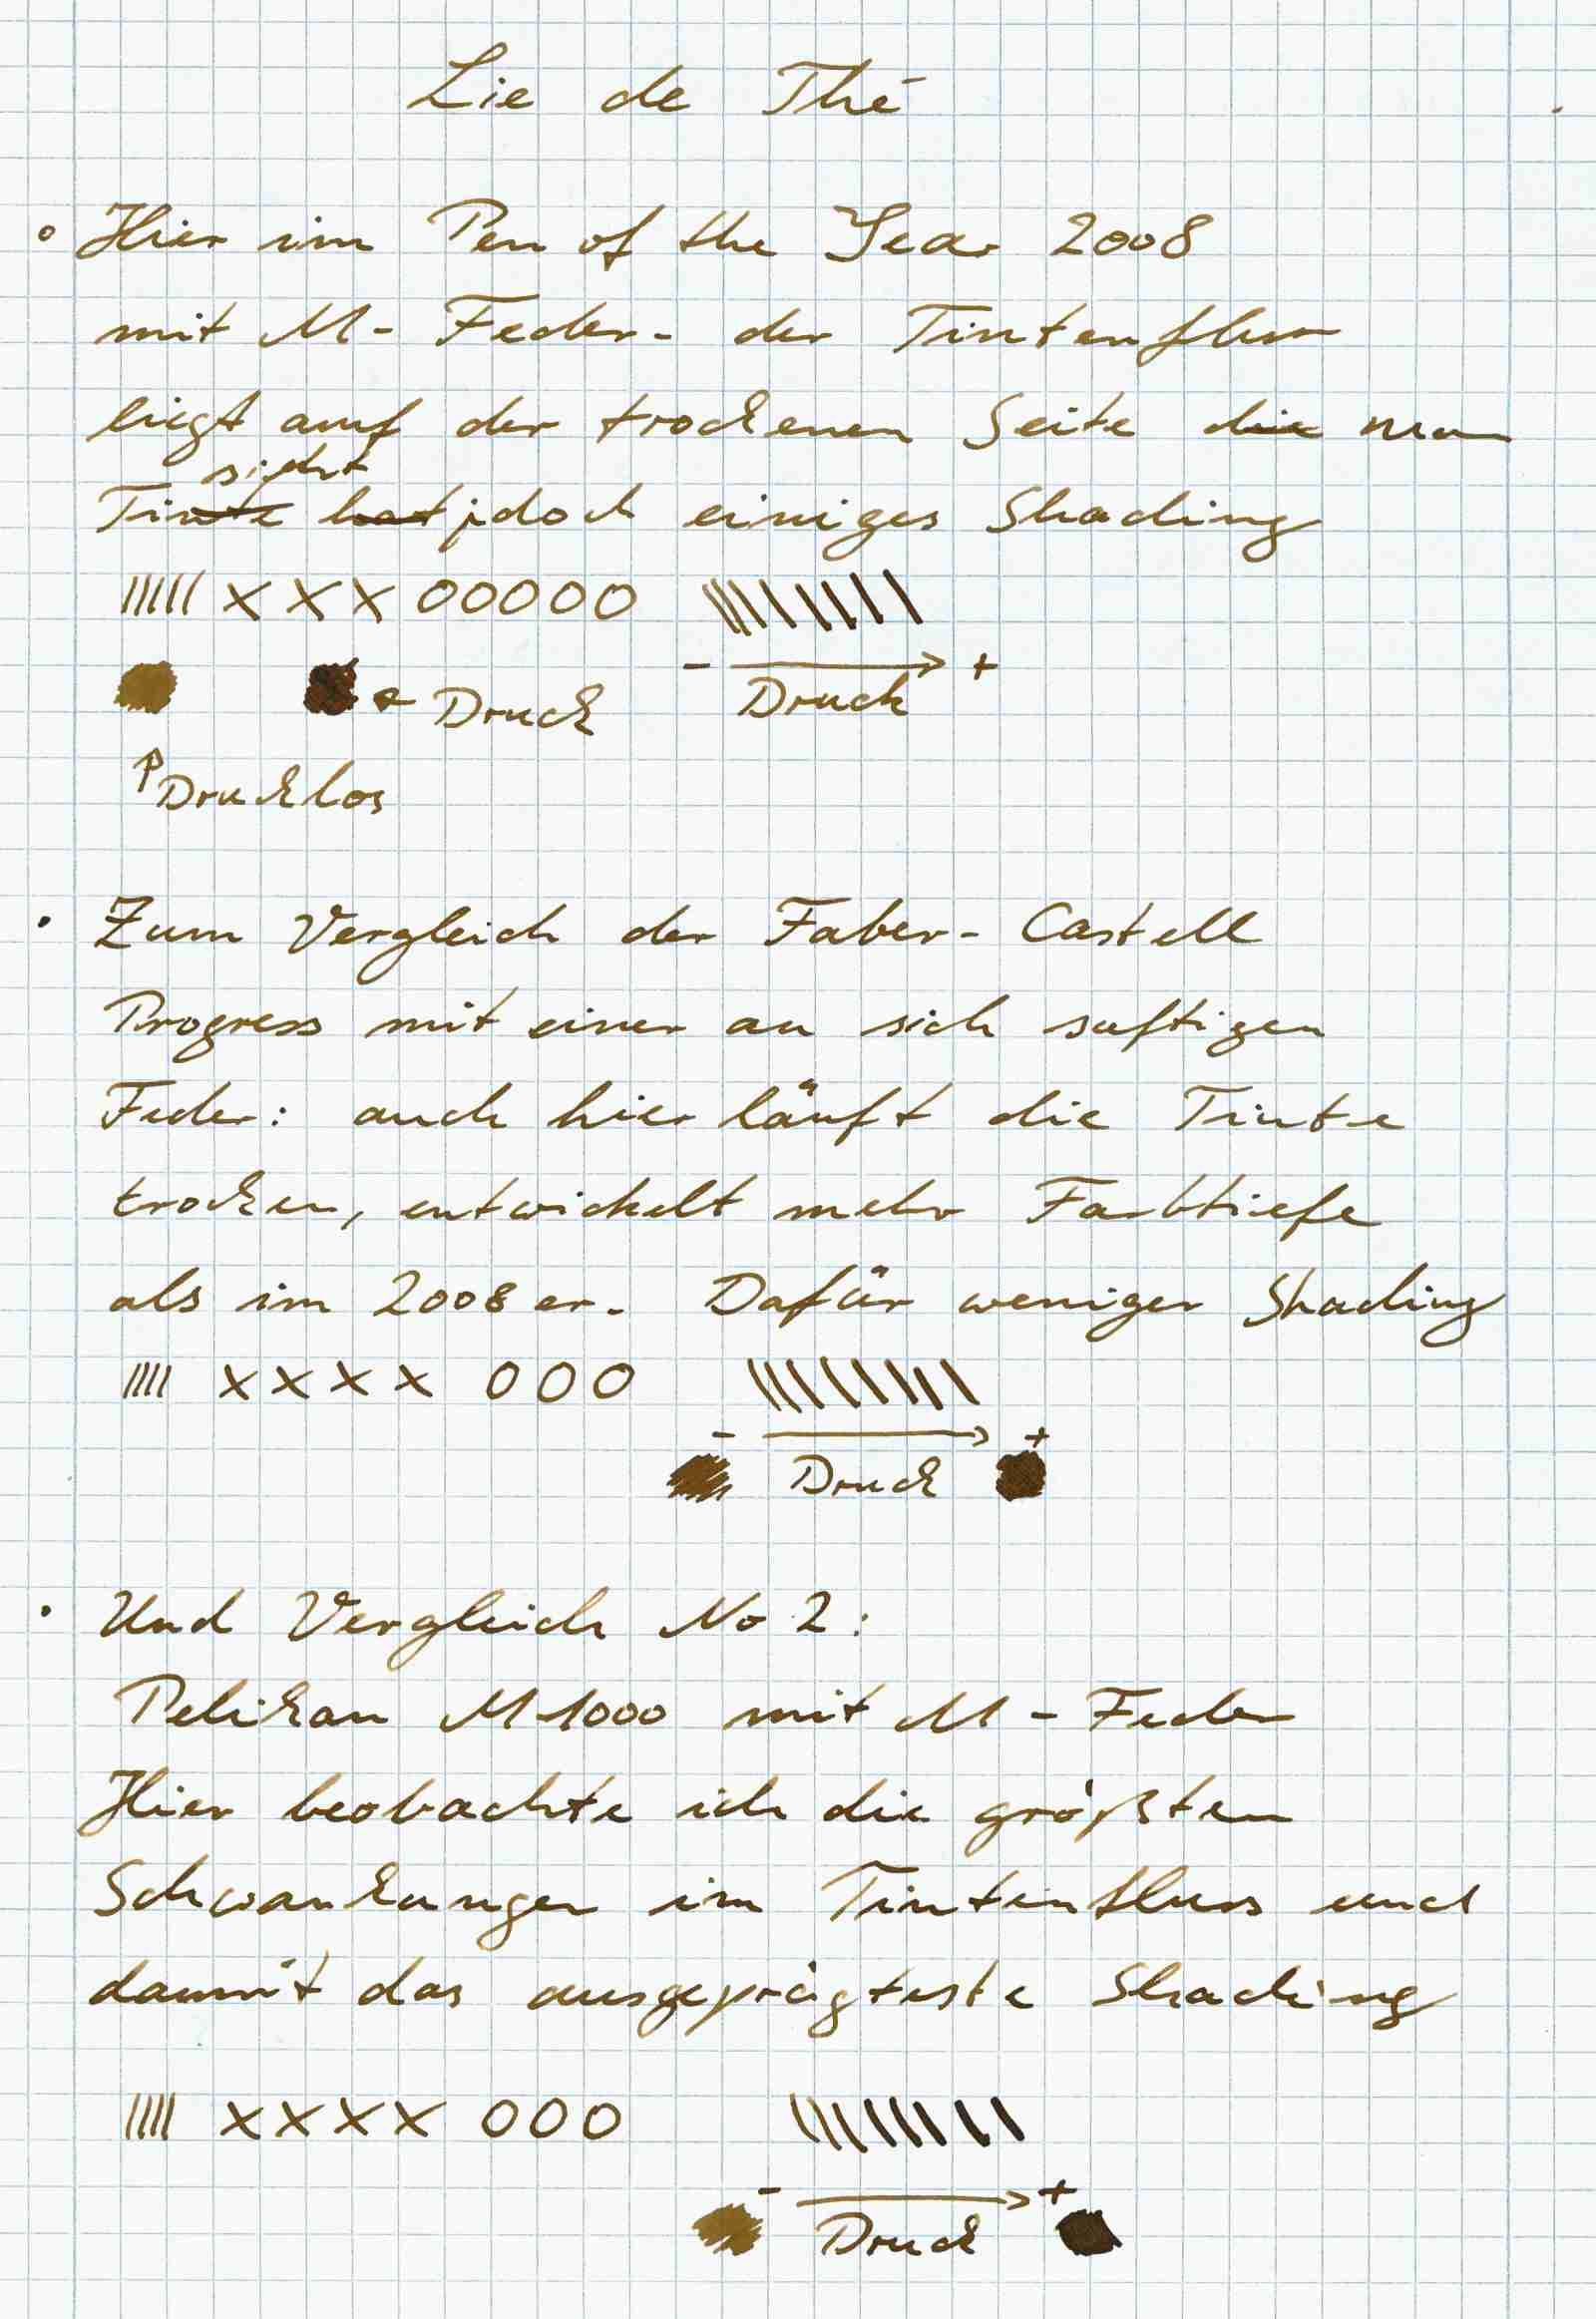 Lie de Thé
Hier im Pen of the Year 2008
mit M- Feder- der Tintenfluss
liegt auf der trockenen Seite die man
sieht
Tinte hat jdoch einiges Shading
||||| X X X OOOOO \\\\\\\\\
- → +
← Druck Druck
↑ Drucklos
Zum Vergleich der Faber-Castell
Progress mit einer an sich saftigen
Feder: auch hier läuft die Tinte
trocken, entwickelt mehr Farbtiefe
als im 2008er. Dafür weniger Shading
|||| X X X X O O O \\\\\\\\\
- → +
Druck
Und Vergleich No 2:
Pelikan M1000 mit M-Feder
Hier beobachte ich die größten
Schwankungen im Tintenfluss und
damit das ausgeprägteste Shading
|||| X X X X O O O \\\\\\\\\
- → +
Druck